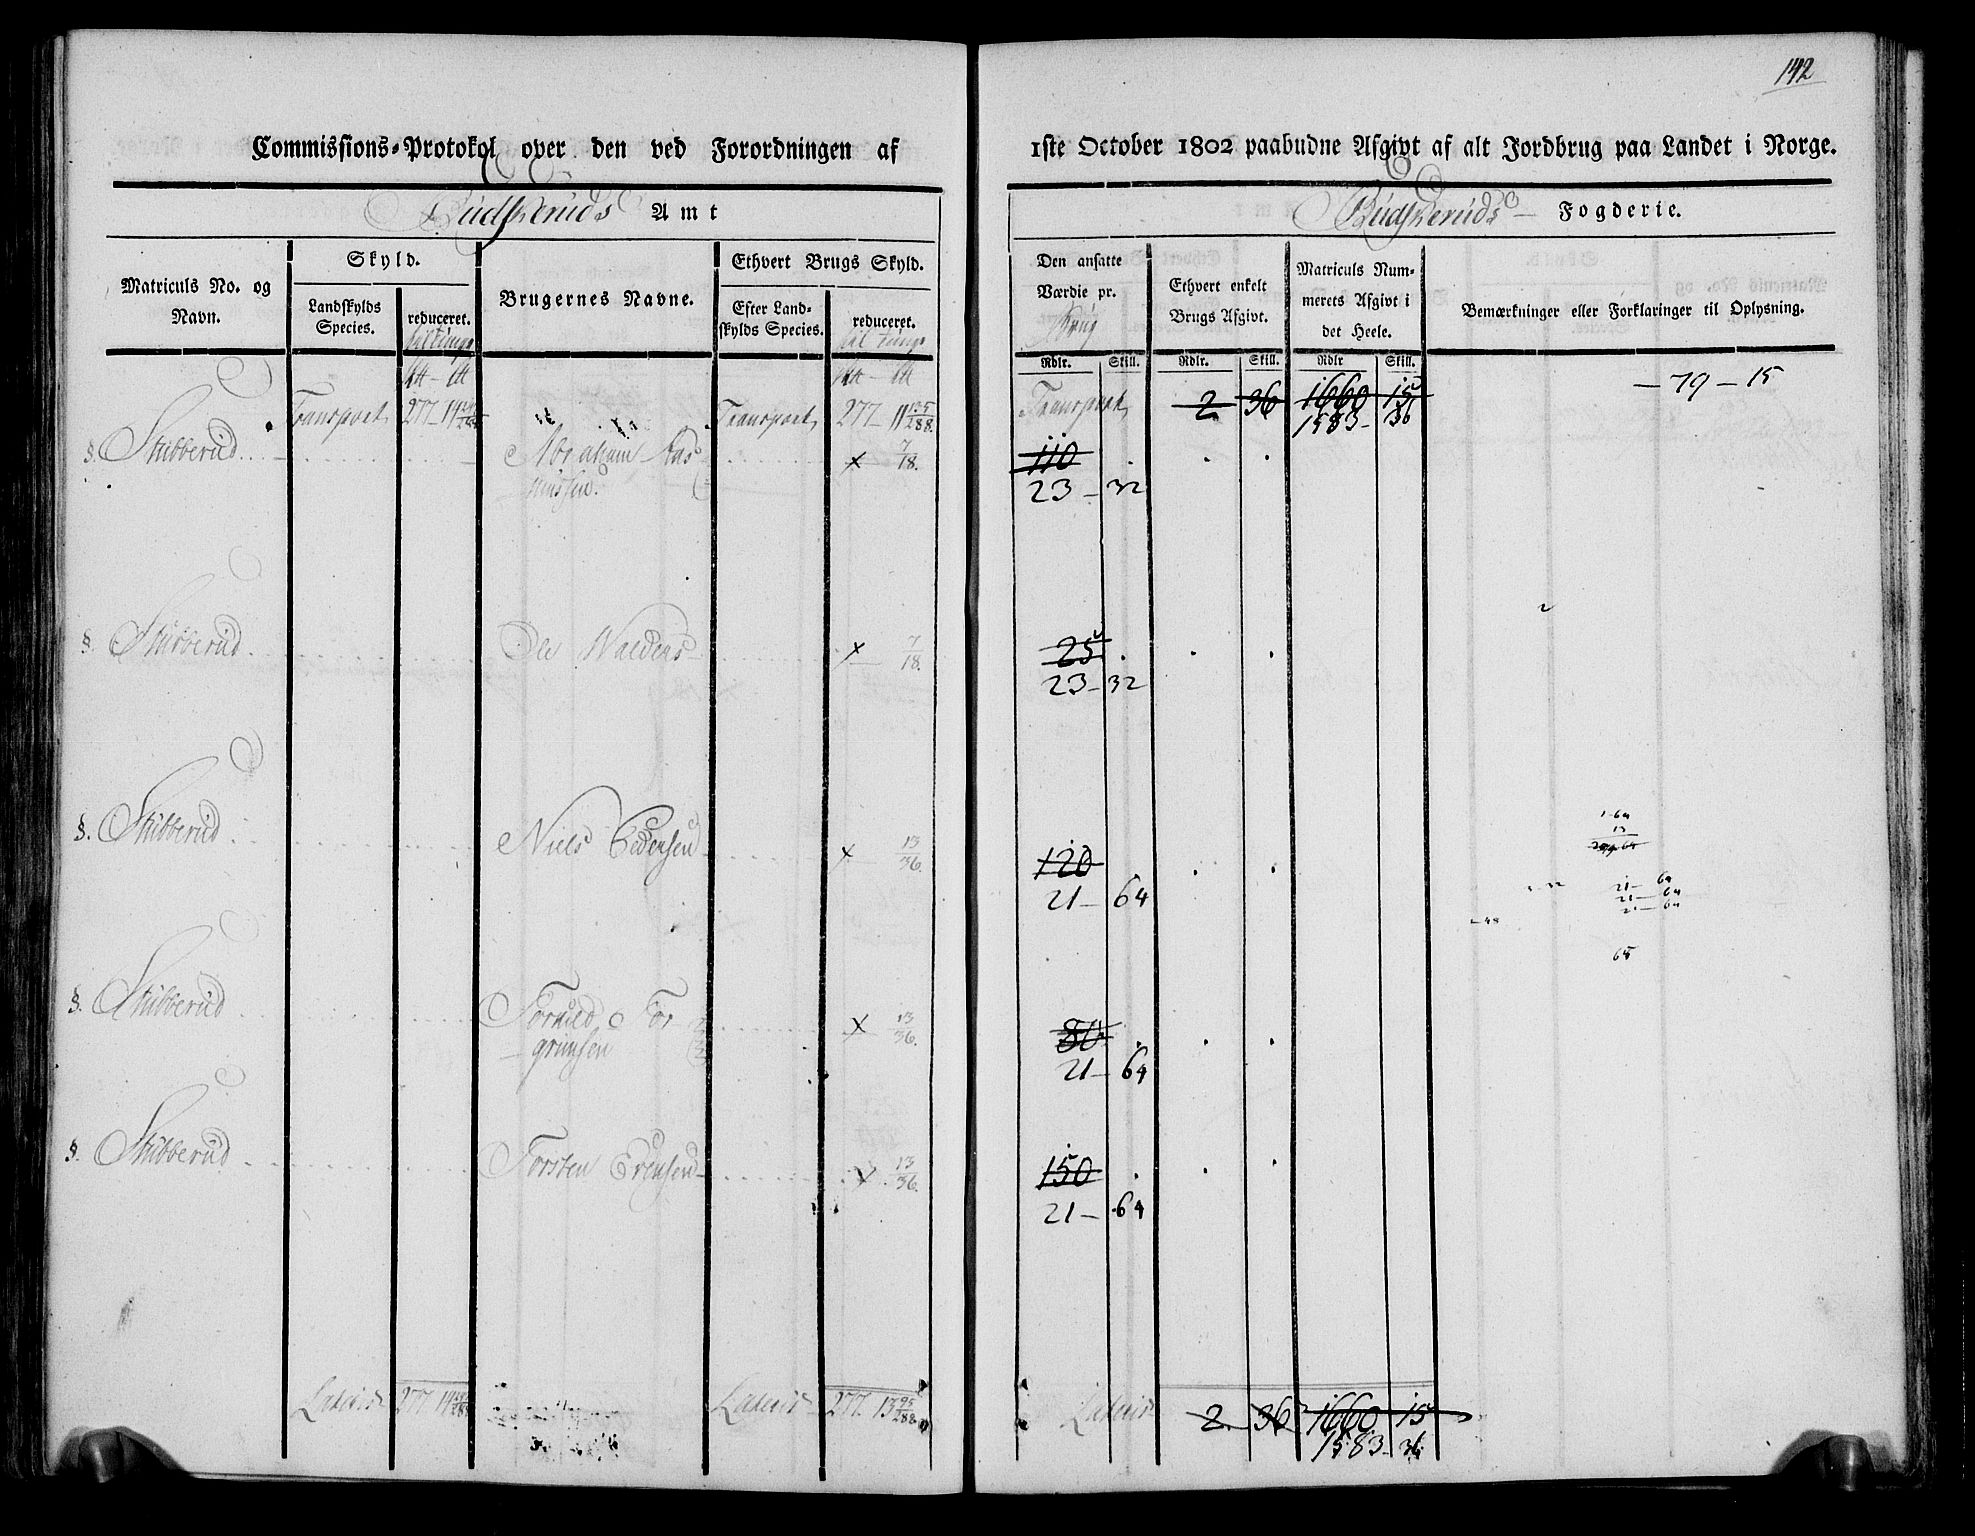 142
Commissions-Protokol over den ved Forordningen af 1ste October 1802 paabudne Afgivt af alt Jordbrug paa Landet i Norge.
Budskeruds Amt
Budskeruds Fogderie.
Matriculs No. og Navn.
Skyld.
Landskylds Species.
reduceret.
Brugernes Navne.
Ethvert Brugs Skyld.
Efter Landskylds Species.
reduceret.
Den ansatte Værdie pr.
Brug
Rdlr. Skill.
Ethvert enkelt Brugs Afgivt.
Rdlr. Skill.
Matriculs Nummerets Afgivt i det Heele.
Rdlr Skill.
Bemærkninger eller Forklaringer til Oplysning.
Transport Transport 277 Transport 2 36 1660 15 — 79 — 15
1583 - 36
§. Stubberud Abraham 7/18. 110
23 — 32
§. Stubberud Ole 7/18. 25
23 — 32
§. Stubberud Niels Pedersen 13/36. 120
21 — 64
§. Stubberud 13/36. 80
21 — 64
§. Stubberud Torsten 13/36. 150
21 — 64
Lateris 277 Lateris 277 13 95/288 Lateris 2 36 1660 15
1583 - 36